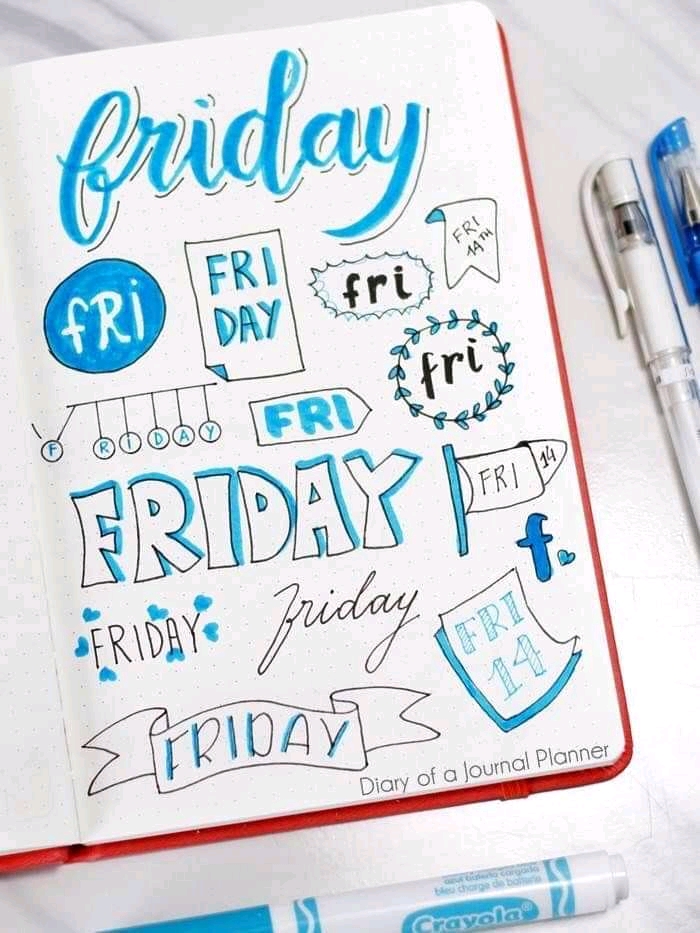 friday
FRI
14TH
fRi
FRI
DAY
fri
fri
F R I D A Y
FRI
FRIDAY
FRI 14
f.
FRIDAY
friday
FRI
14
FRIDAY
Diary of a Journal Planner
azul batería cargada
bleu charge de batterie
Crayola